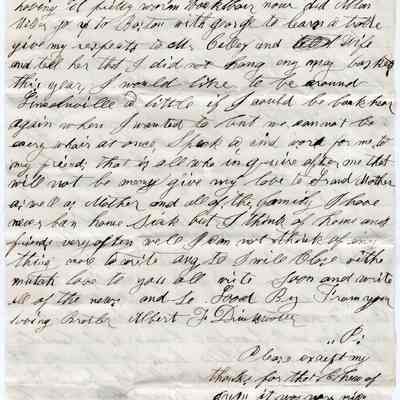 having it pretty warm how about your did Allen
go up to Boston with George to learn a trade
give my respects to Mr Calley and Wife
and tell her that I did not hang eny may basket
this year I would like to be around
Lincolnville a little if I could be back hear
again when I wanted to but we cannot be
every whair at once Speak a kind word for me to
my friends that is all who inquire after me that
will not be meny give my love to Grand Mother
as well as Mother and all of the family I have
never ban home Sick but I think of home and
friends very often well I can not think of eny
thing more to write eny so I will Close withe
mutch love to you all write Soon and write
all of the news and so Good By From your
loving Brother Albert F Drinkwater
P.
Please except my
thanks for that of
it was very nice